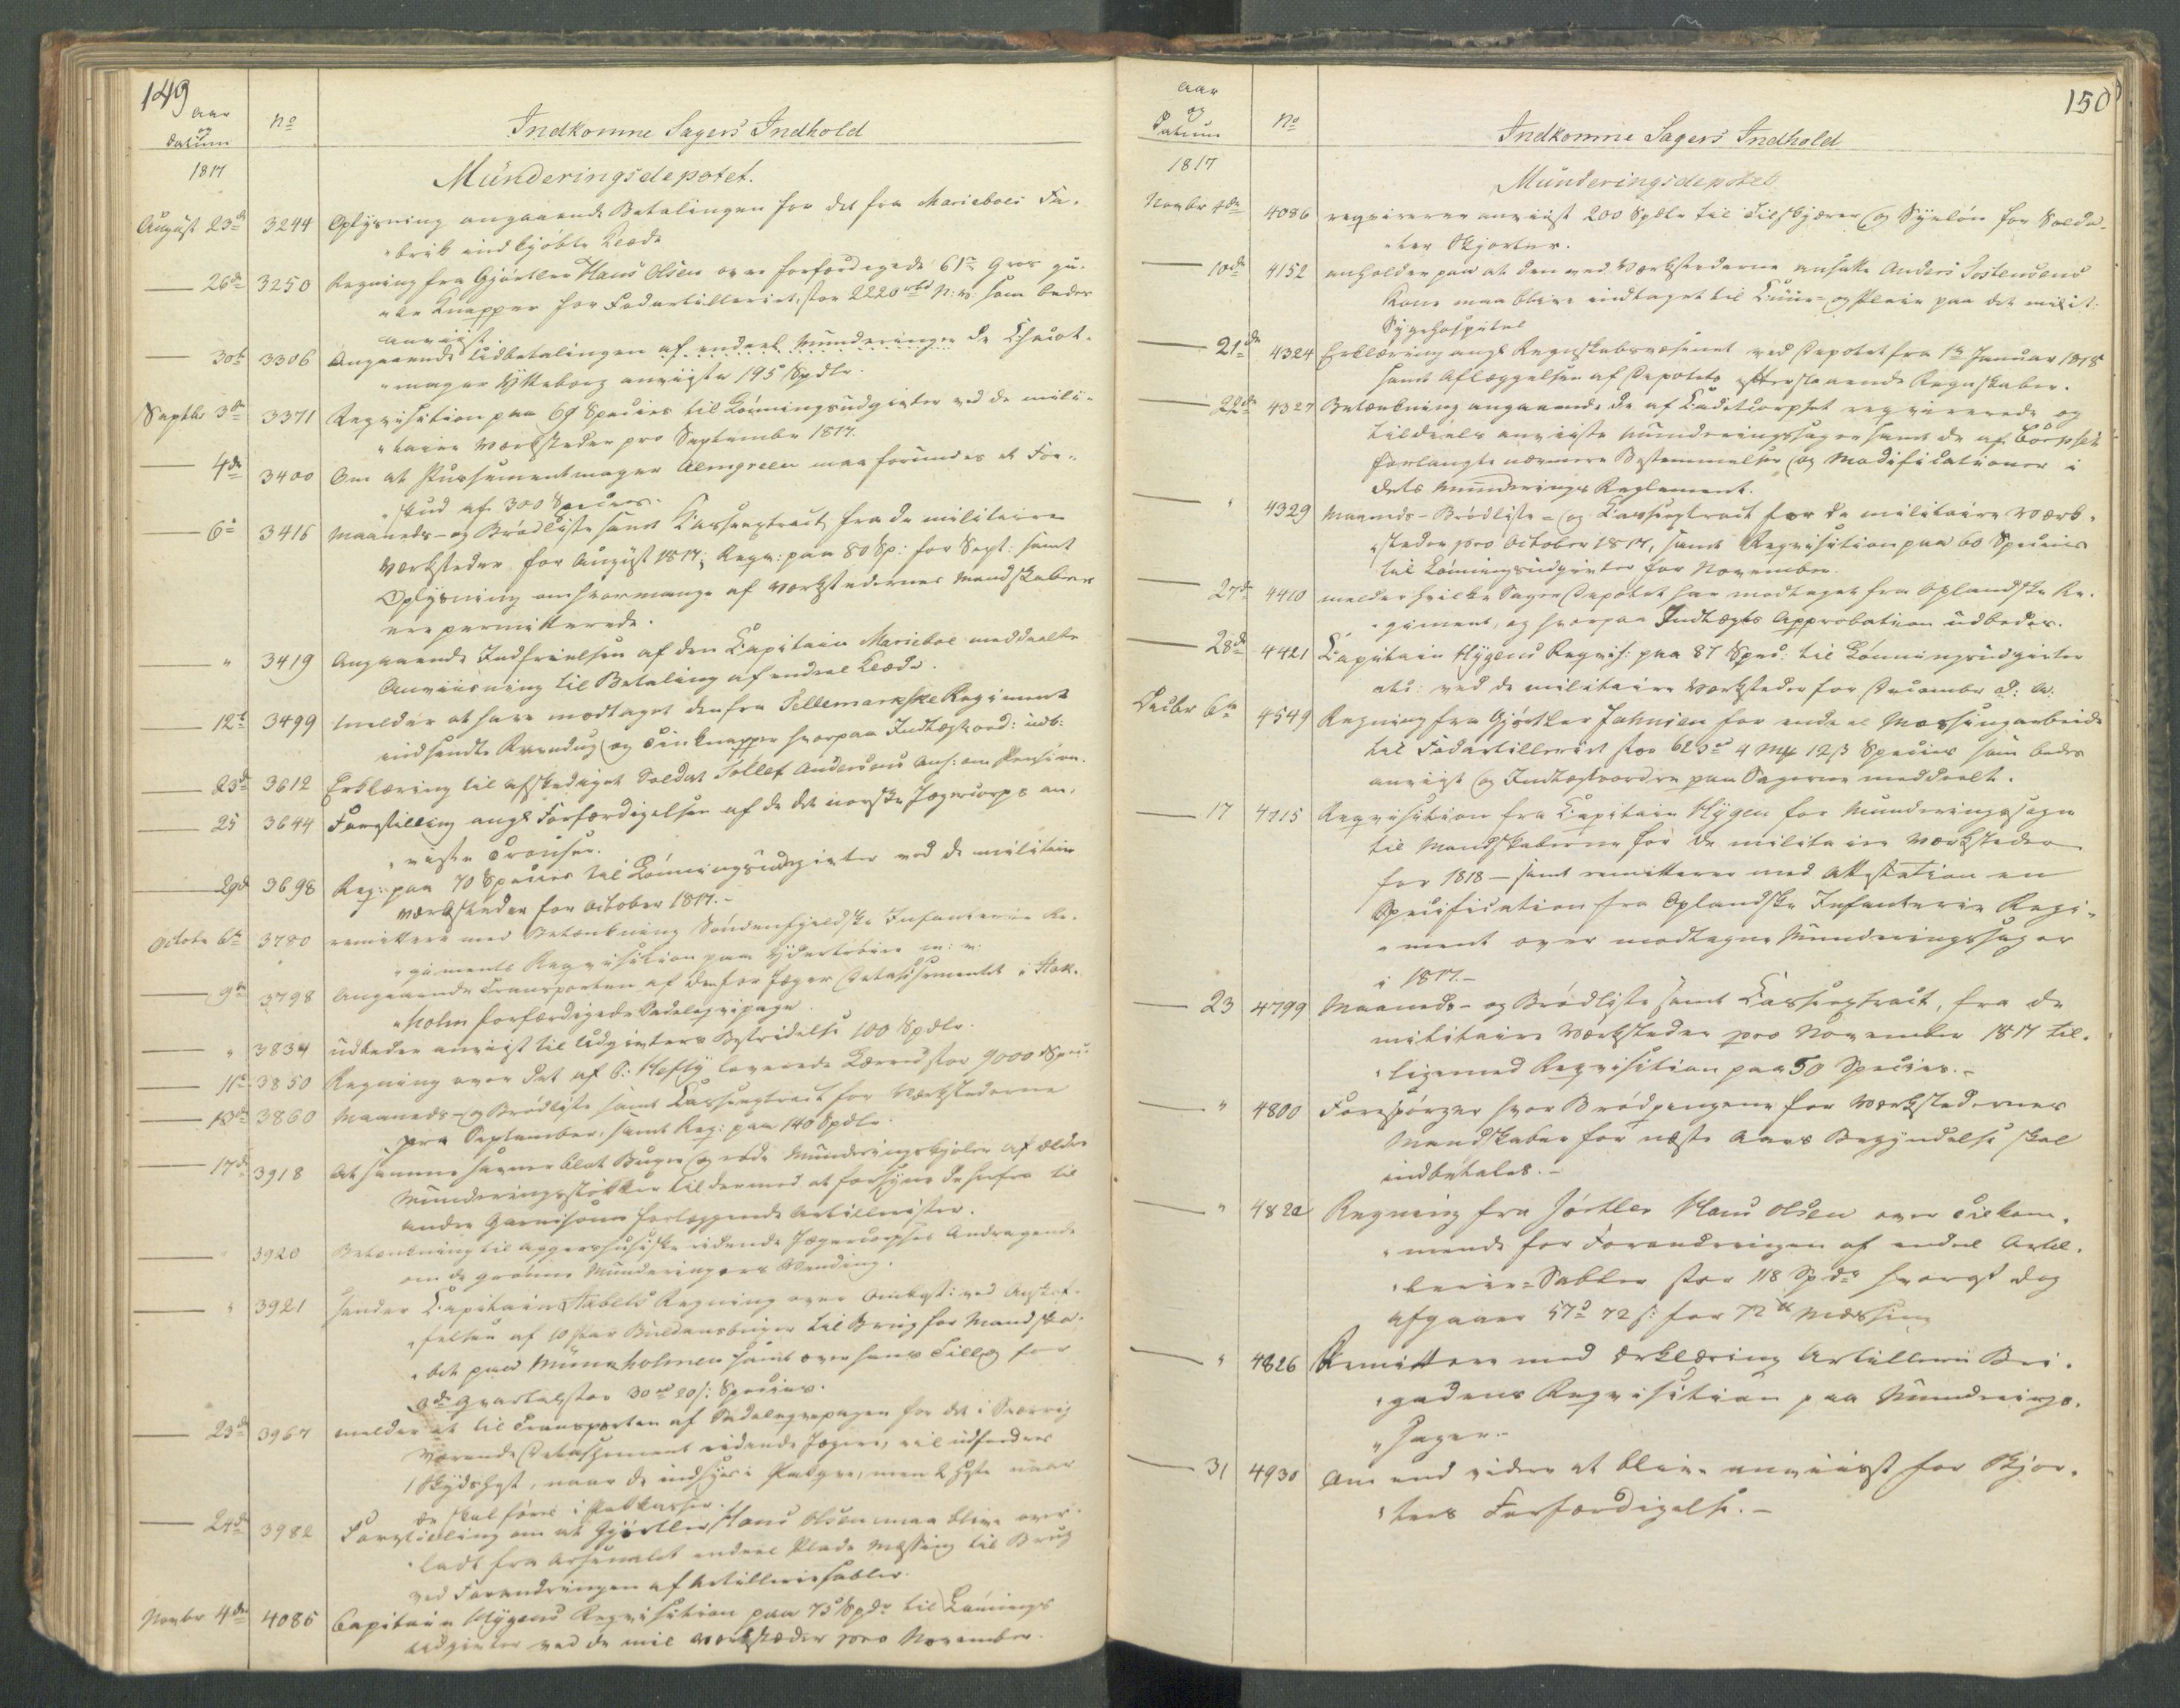 149
Aar
og
Datum
No
Indkomne Sagers Indhold
1817
Münderingsdepotet.
August 23de 3244 Oplysning angaaende Betalingen for det fra Marieboes Fa-
brik indkjøbte Klæde
26de 3250 Regning fra Gjørtler Hans Olsen over forfærdigede 61 Gros gu-
le Knapper for Fodartilleriet, stor 2220 rbd N: V: som bedes
anviist.
30te 3306 Angaaende Udbetalingen af endeel Munderinger de
mager Ytteborg anviiste 195 Spdlr.
Septbr 3de 3371 Reqvisition paa 69 Species til Lønningsudgivter ved de mili-
taire Værksteder pro September 1817.
4de 3400 Om at Possementmager Almgreen maa forundes et For-
skud af 300 Species.
6te 3416 Maaneds- og Brødliste samt Cassaextract fra de militaire
Værksteder for August 1817; Reqv: paa 80 Sp: for Sept: samt
Oplysning om hvormange af Værkstedernes Mandskaber
ere permitterede.
" 3419 Angaaende Indfrielsen af den Capitain Marieboe meddeelte
Anviisning til Betaling af endeel Klæde.
12te 3499 melder at have modtaget den fra Tellemarkske Regiment
indsendte Ravndug og Tinknapper hvorpaa Indtægtsord: udb:
23de 3612 Erklæring til afskediget Soldat Tollef Andersens Ans: om Pension.
25 3644 Forestilling angl Forfærdigelsen af de det norske Jægercorps an-
viste
29de 3698 Req: paa 70 Species til Lønningsudgivter ved de militaire
Værksteder for October 1817.-
Octobr 6te 3780 remitterer med Betænkning Søndenfjeldske Infanterie Re-
giments Reqvisition paa m: v:
9de 3798 Angaaende Transporten af den for Jæger Detaschementet i Stok-
holm forfærdigede Sadeleqvipage
" 3834 udbeder anviist til Udgivters Bestridelse 100 Spdlr.
11te 3850 Regning over det af C: Hefty leverede Lærred stor 9000 Spec
13de 3860 Maaneds- og Brødliste samt Cassaextract for Værkstederne
pro September, samt Req: paa 140 Spdlr.
17de 3918 At samme savner blaat og røde Munderingskjoler af ældre
Munderingsstøkker til dermed at forsyne de herfra til
andre Garnisoner henlæggende Artillerister.
3920 Betænkning til Aggershusiske ridende Jægercorpses Andragende
om de grønne Munderingers
" 3921 sender Capitain Stabels Regning over Omkost: ved Anskaf-
felsen af 10 Par til Brug for Mandska-
bet paa Munkholmen samt over hans Tillæg for
3de Qvartal stor 30 20 s: Species.
23de 3967 melder at til Transporten af Sadeleqvipagen for det i Sverrig
værende Detaschement ridende Jægere, vil udfordres
1 Skydshest, naar de indsyes i men 2 Heste naar
de skal føres i Pakkasser.
24de 3982 Forestilling om at Gjørtler Hans Olsen maa blive over-
ladt fra Arsenalet endeel Plade Messing til Brug
ved Forandringen af Artilleriesabler.
Novbr 4de 4085 Capitain Hygens Reqvisition paa 75 Spdr til Lønnings
udgivter ved de mil Værksteder pro November.
Aar
og
Datum
No
150
Indkomne Sagers Indhold
1817
Münderingsdepotet
Novbr 4de 4086 reqvirerer anviist 200 Spdlr til Tilskjærer og Syeløn for Solda-
ter Skjorter.
10de 4152 anholder paa at den ved Værkstederne ansatte Anders Jostensens
Kone maa blive indtaget til Cuur- og Pleie paa det milit:
Sygehospital
21de 4324 Erklæring angl Regnskabsvæsenet ved Depotet fra 1ste Januar 1818
samt Aflæggelsen af Depotets efterstaaende Regnskaber.
22de 4327 Betænkning angaaende de af Cadetcorpset reqvirerede og
tildeels anviste Munderingssager samt de af Corpset
forlangte nærmere Bestemmelser og Modificationer i
dets Munderings Reglement.
" 4329 Maaneds- Brødliste- og Cassaextract for de militaire Værk-
steder pro October 1817, samt Reqvisition paa 60 Species
til Lønningsudgivter for November.
27de 4410 melder hvilke Sager Depotet har modtaget fra Oplandske Re-
giment, og hvorpaa Indtægts Approbation udbedes.
28de 4421 Capitain Hygens Reqvis: paa 87 Spec: til Lønningsudgivter
etc: ved de militaire Værksteder for December d: A.
Decbr 6te 4549 Regning fra Gjørtler Johnsen for endeel Messingarbeide
til Fodartilleriet stor 623 4 Mk 12 s Species som bedes
anviist og Indtægtsordre paa Sagerne meddeelt.
17 4715 Reqvisition fra Capitain Hygen for Munderingssager
til Mandskaberne for de militaire Værksteder
for 1818 - samt remitterer med Attestation en
Specification fra Oplandske Infanterie Regi-
ment over modtagne Munderingssager
i 1817.-
23 4799 Maaneds- og Brødliste samt Cassaextract, fra de
militaire Værksteder pro November 1817 til-
ligemed Reqvisition paa 50 Species.-
" 4800 Forespørger hvor Brødpengene for Værkstedernes
Mandskaber for næste Aars Begyndelse skal
indbetales.-
" 4820 Regning fra Jørtler Hans Olsen over Tilkom-
mende for Forandringen af endeel Artil-
lerie-Sabler stor 118 Spdr hvoraf dog
afgaaer 57 72 s: for 72 Messing
" 4826 Remitterer med Erklæring Artillerie Bri-
gadens Reqvisition paa Munderings-
sager.-
31 4930 Om end videre at blive anviist for Skjor-
ters Forfærdigelse.-